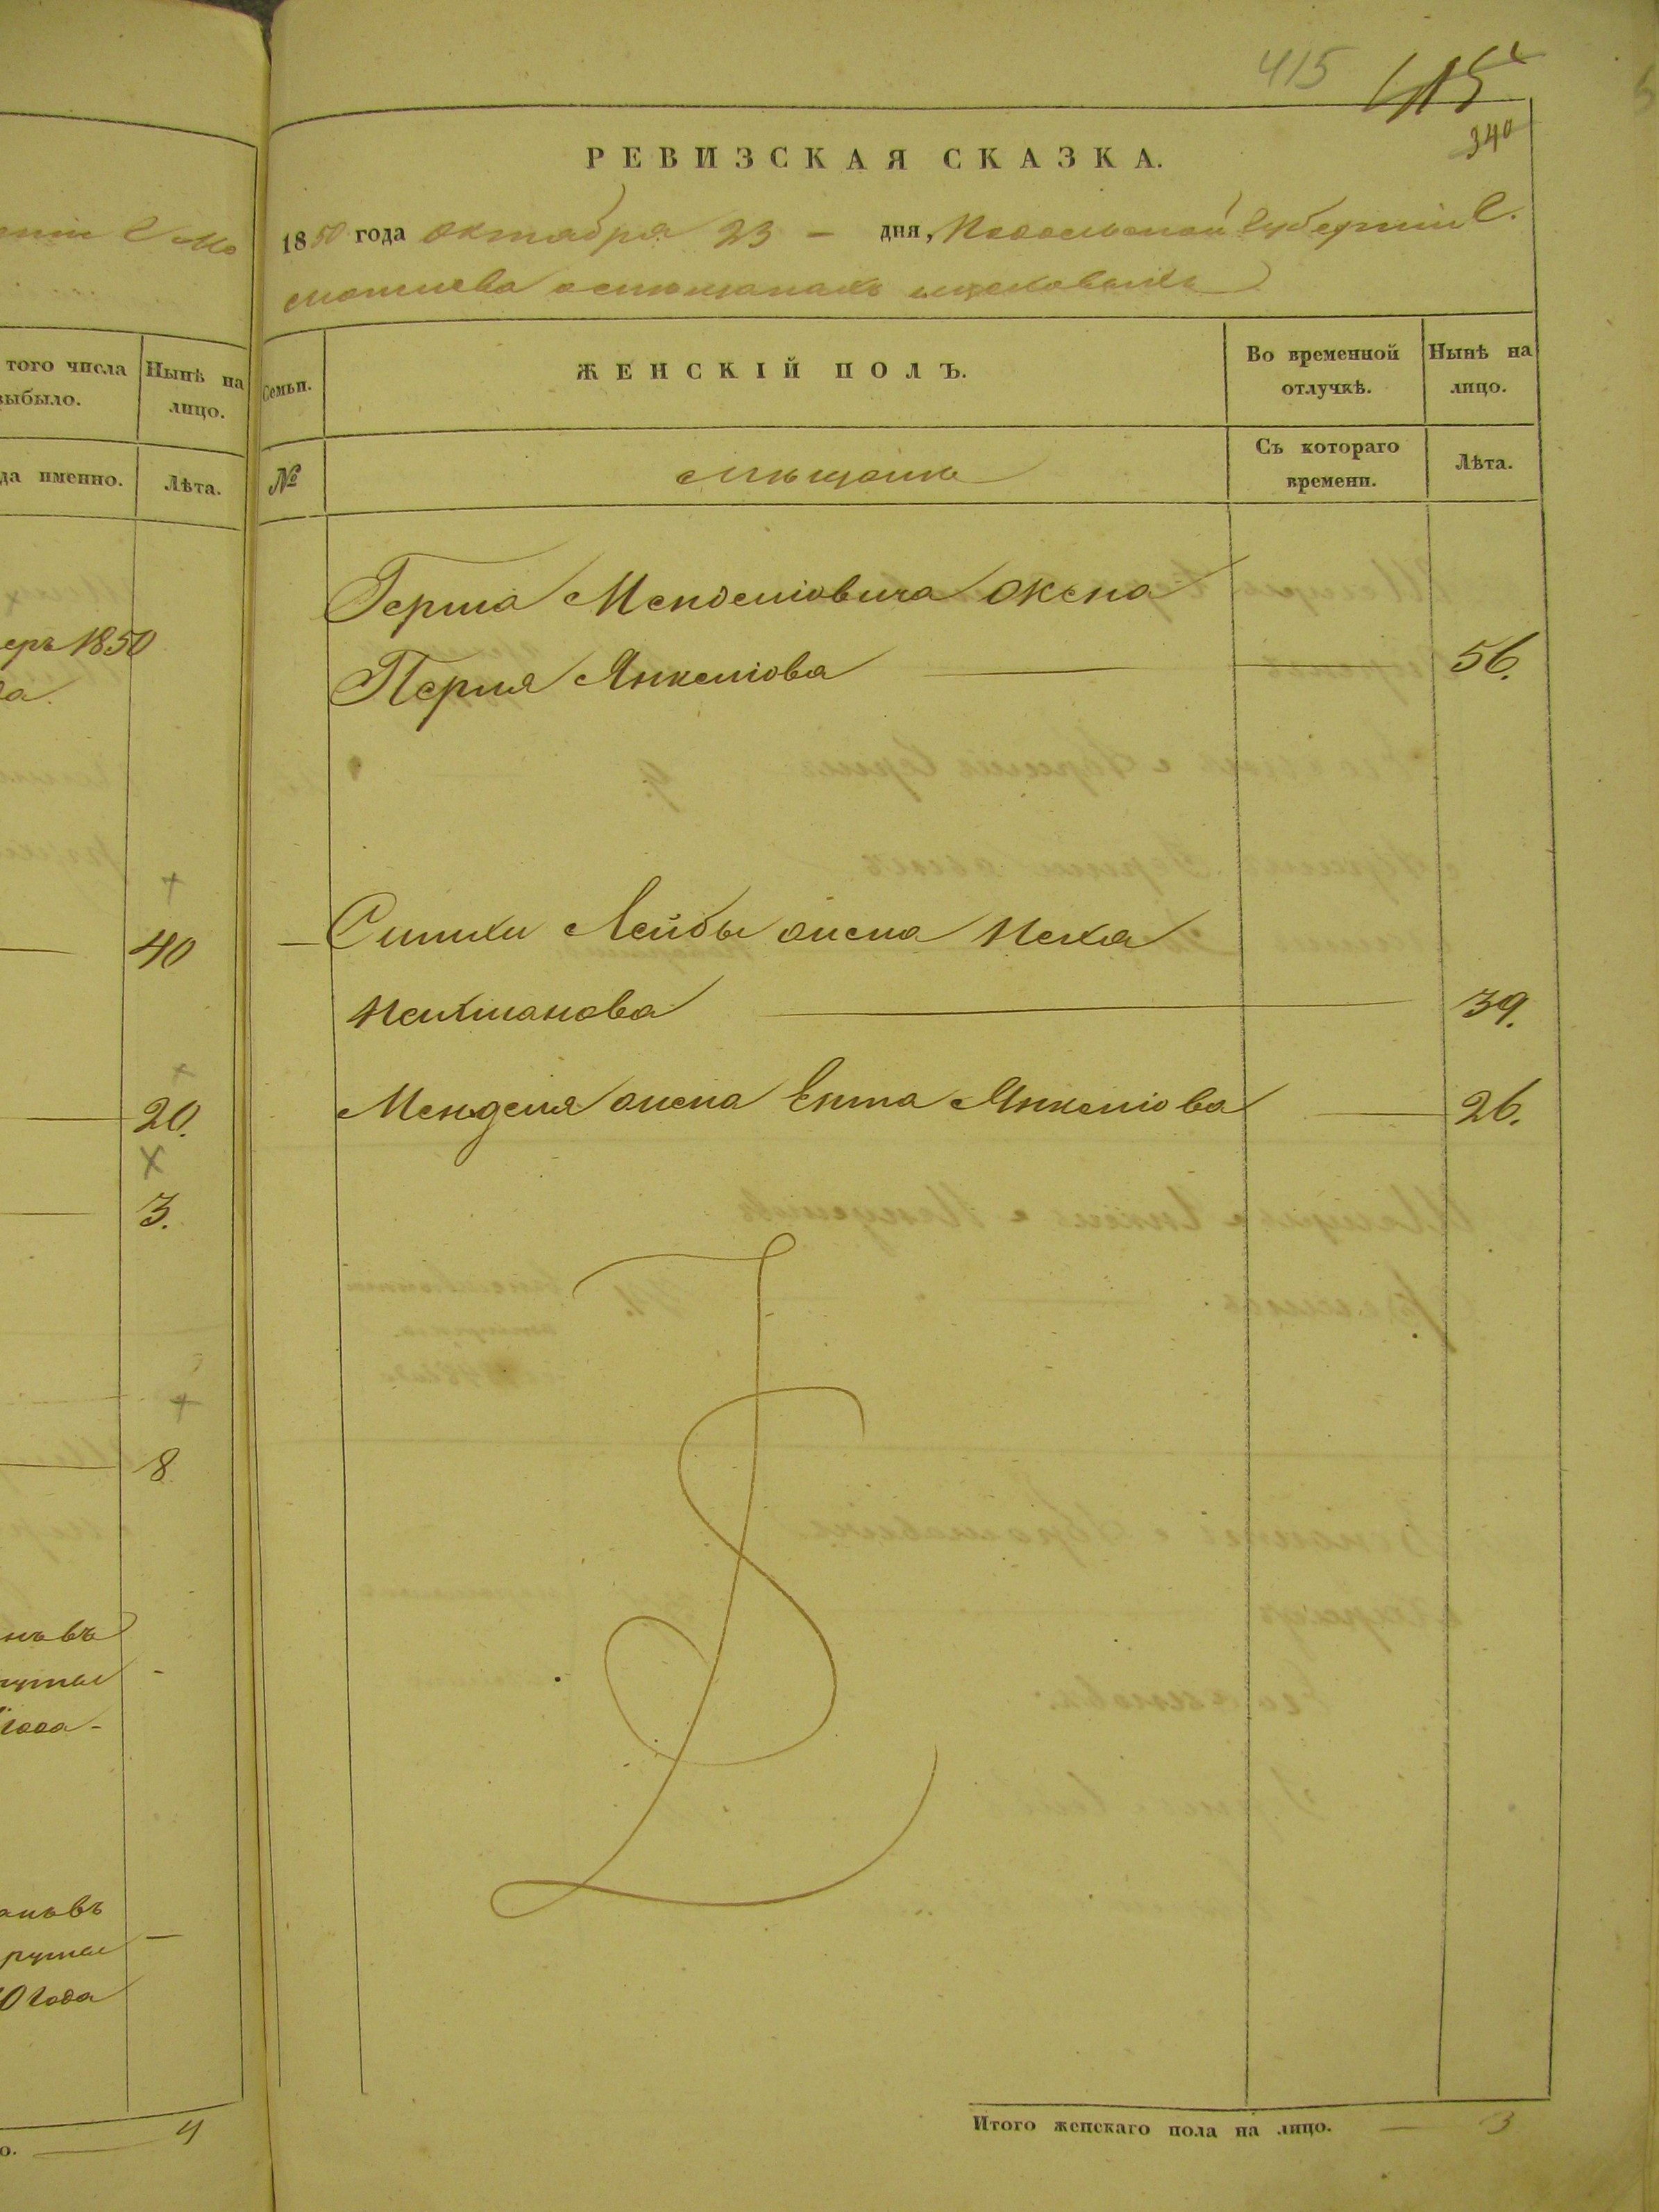 415 415
340
РЕВИЗСКАЯ СКАЗКА.
1850 года октября 23 — дня, Подольской Губерніи С.
о мѣщанахъ
того числа
выбыло.
Нынѣ на
лицо.
Семьи.
ЖЕНСКІЙ ПОЛЪ.
Во временной
отлучкѣ.
Нынѣ на
лицо.
да именно.
Лѣта.
№
мѣщане
Съ котораго
времени.
Лѣта.
Герша Менделіовича жена
Перля Янкеліова 56.
1850
40
Лейбы жена Неха
39.
Менделя жена Ента Янкеліова 26.
20.
3.
8
года
4
Итого женскаго пола на лицо. — 3